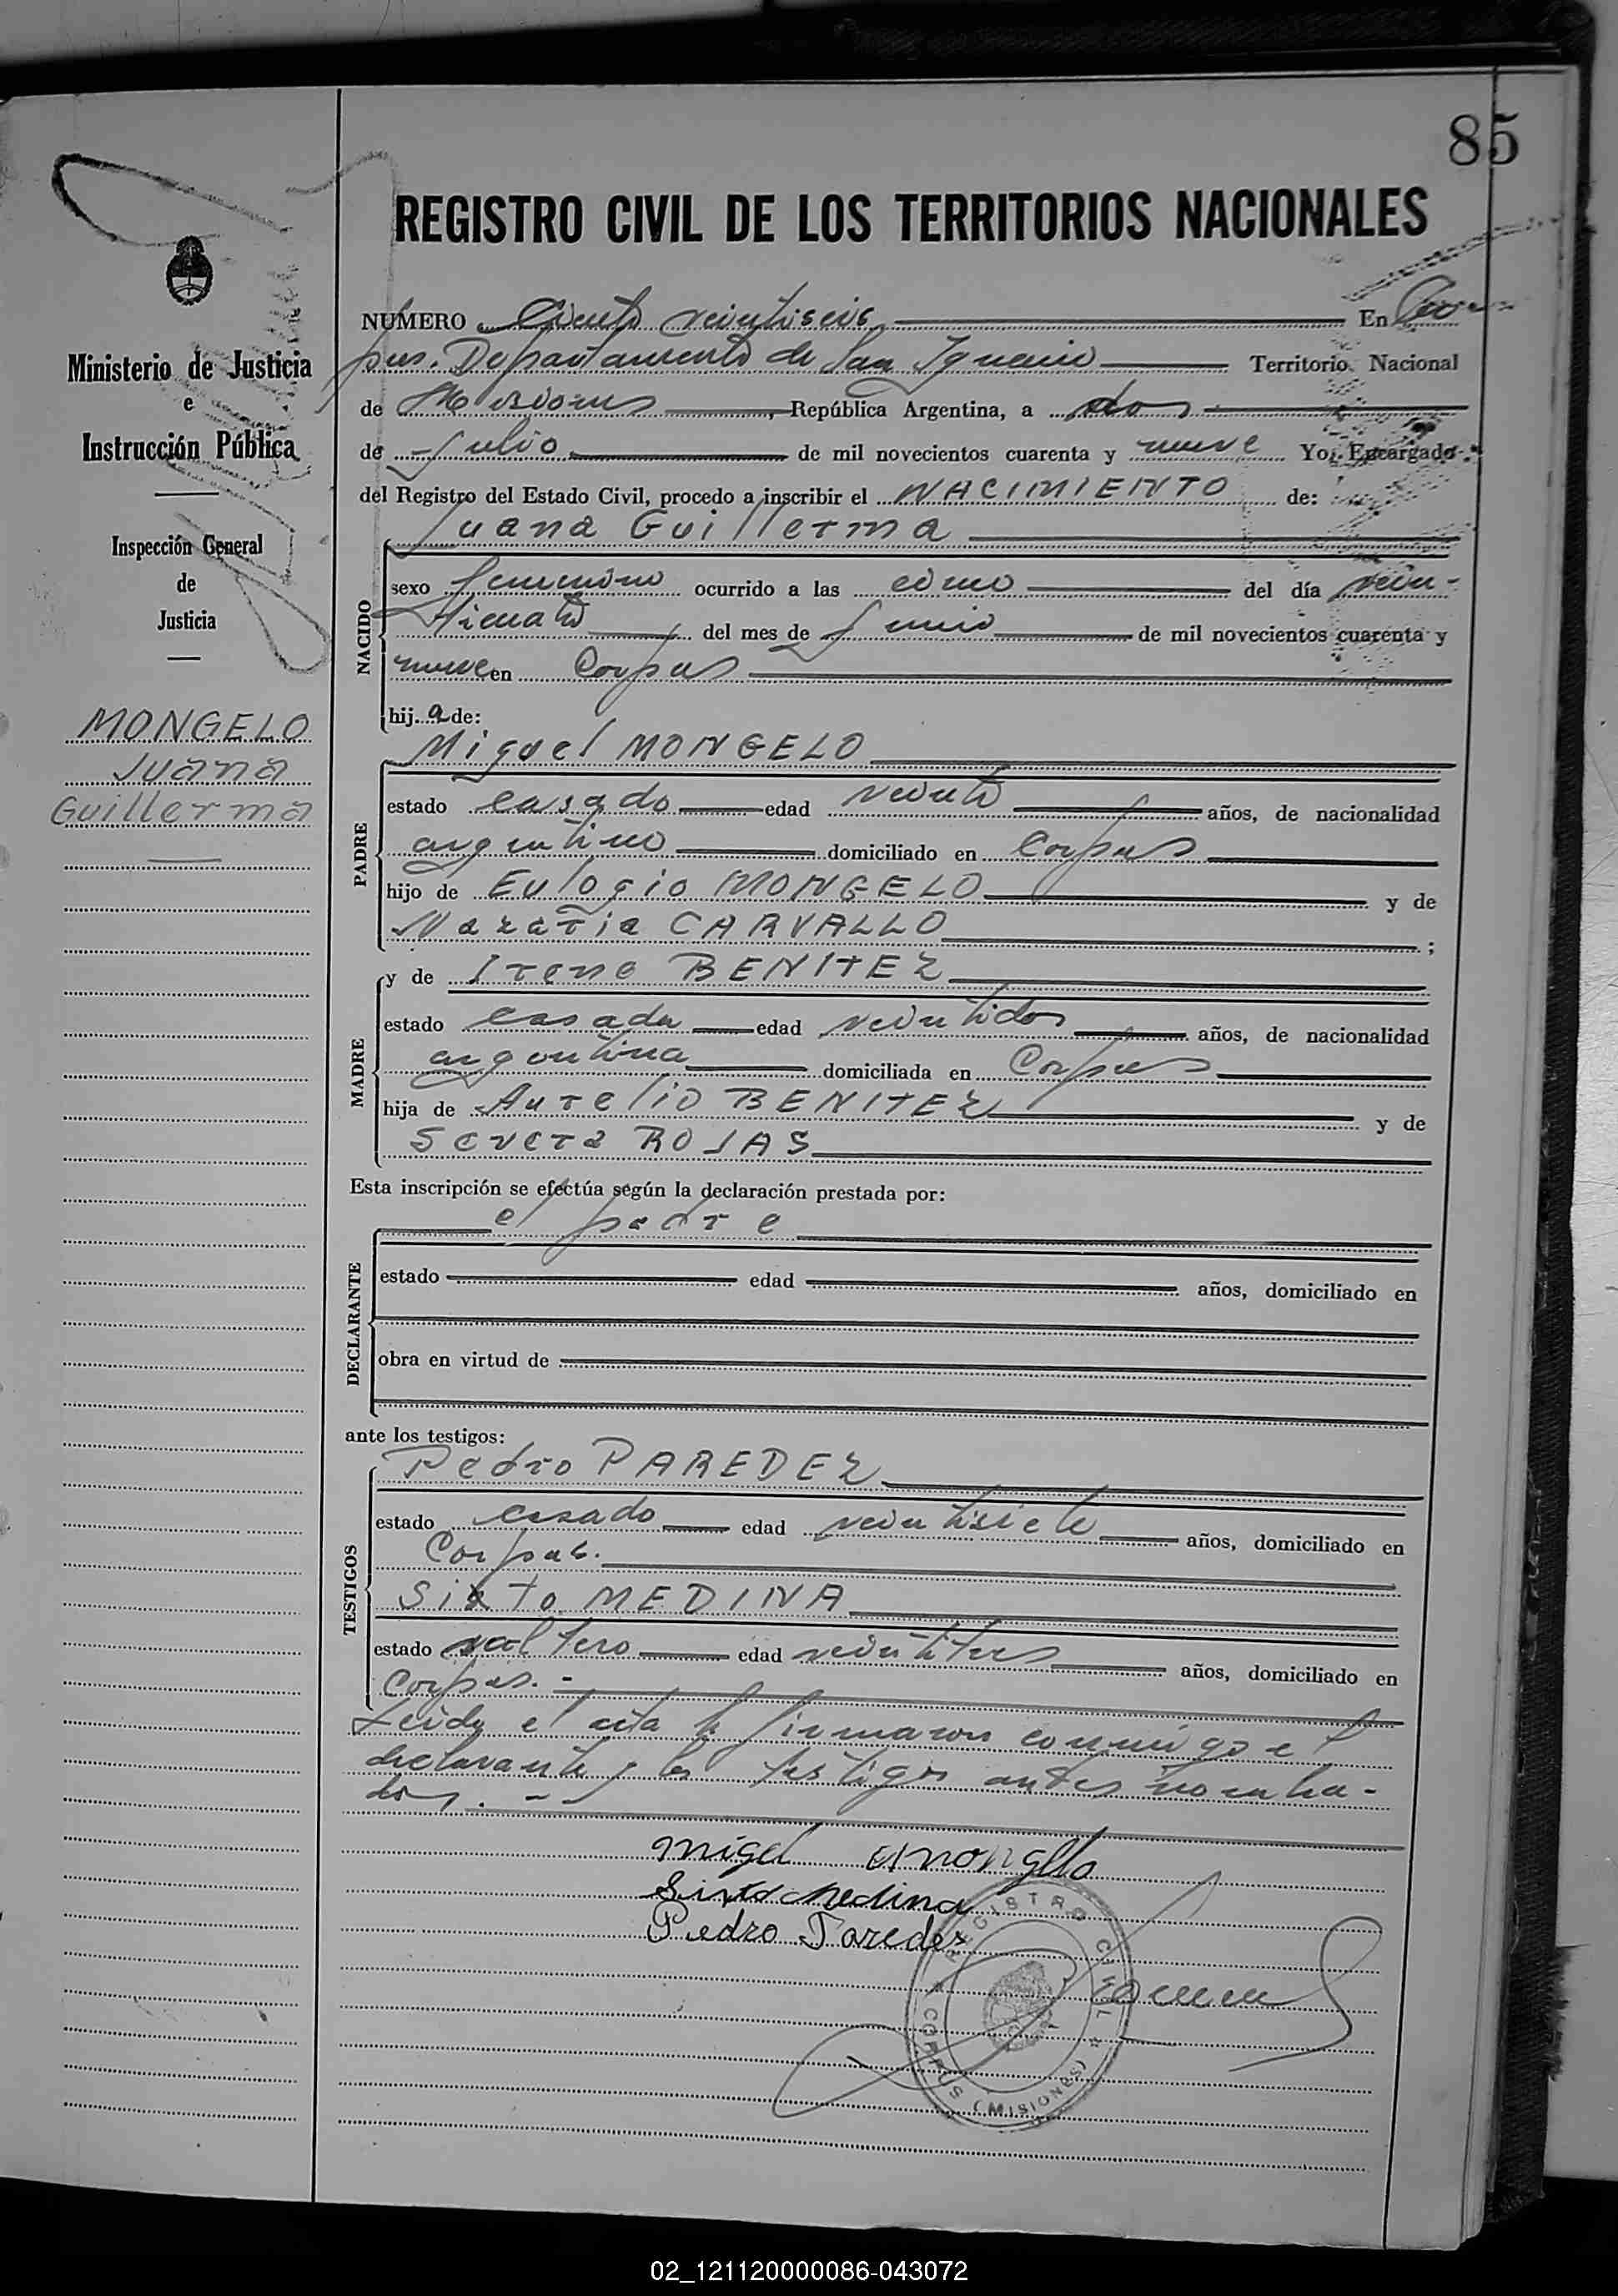 85
REGISTRO CIVIL DE LOS TERRITORIOS NACIONALES
Ministerio de Justicia
e
Instrucción Pública
Inspección General
de
Justicia
MONGELO
Juana
Guillerma
NUMERO Ciento veintiseis En Cor-
pus. Departamento de San Ignacio Territorio Nacional
de Misiones, República Argentina, a dos
de Julio de mil novecientos cuarenta y nueve Yo, Encargado
del Registro del Estado Civil, procedo a inscribir el NACIMIENTO de:
Juana Guillerma
NACIDO
sexo femenino ocurrido a las cinco del día vein-
ticuatro del mes de Junio de mil novecientos cuarenta y
nueve en Corpus
hija de:
Miguel MONGELO
PADRE
estado casado edad veinte años, de nacionalidad
argentino domiciliado en Corpus
hijo de Eulogio MONGELO y de
Nazaria CARVALLO ;
MADRE
y de Irene BENITEZ
estado casada edad veintidos años, de nacionalidad
argentina domiciliada en Corpus
hija de Aurelio BENITEZ y de
Severa ROJAS
Esta inscripción se efectúa según la declaración prestada por:
el padre
DECLARANTE
estado edad años, domiciliado en
obra en virtud de
ante los testigos:
Pedro PAREDEZ
TESTIGOS
estado casado edad veintisiete años, domiciliado en
Corpus.
Sixto MEDINA
estado soltero edad veintitres años, domiciliado en
Corpus. -
Leida el acta la firmaron conmigo el
declarante y los testigos antes nombra-
dos. - -
Migel Mongelo
Sixto Medina
Pedro Paredes
REGISTRO CIVIL
CORPUS (MISIONES)
02_121120000086-043072